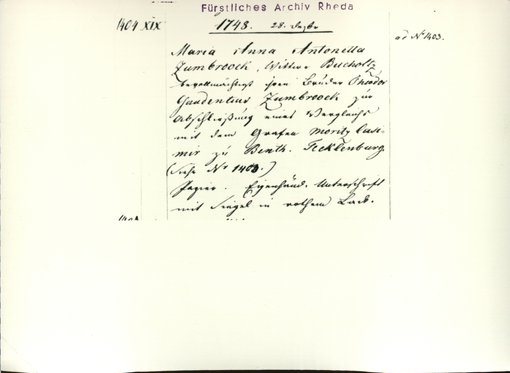 Fürstliches Archiv Rheda
1404 XIX
1748. 28. Dezbr
ad No 1403.
Maria Anna Antonetta
Zumbroock, Wittwe Bucholtz
bevollmächtigt ihren Bruder Theodor
Gaudentius Zumbroock zur
Abschließung eines Vergleichs
mit dem Grafen Moritz Casi-
mir zu Benth. Tecklenburg.
(Siehe No 1403.)
Papier. Eigenhänd. Unterschrift
mit Siegel in rothem Lack.